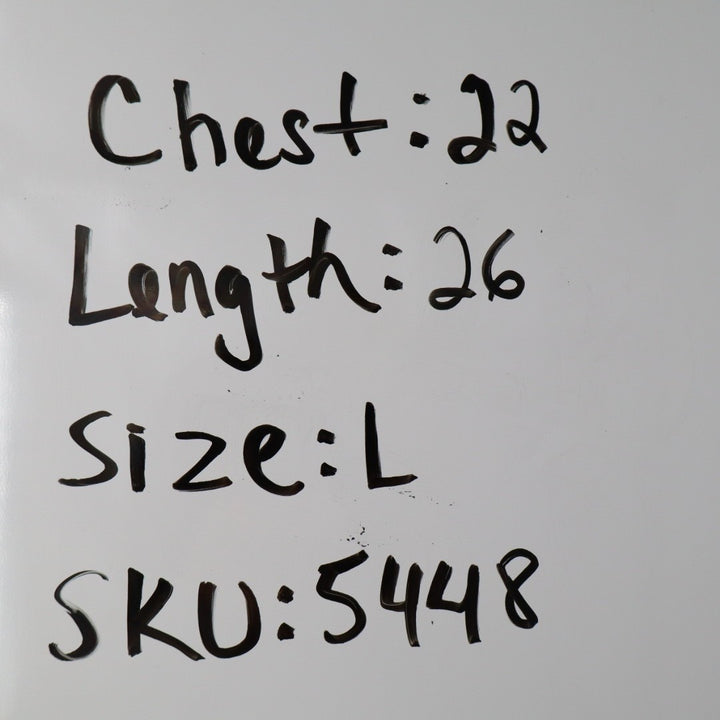 Chest:22
Length:26
Size:L
SKU:5448